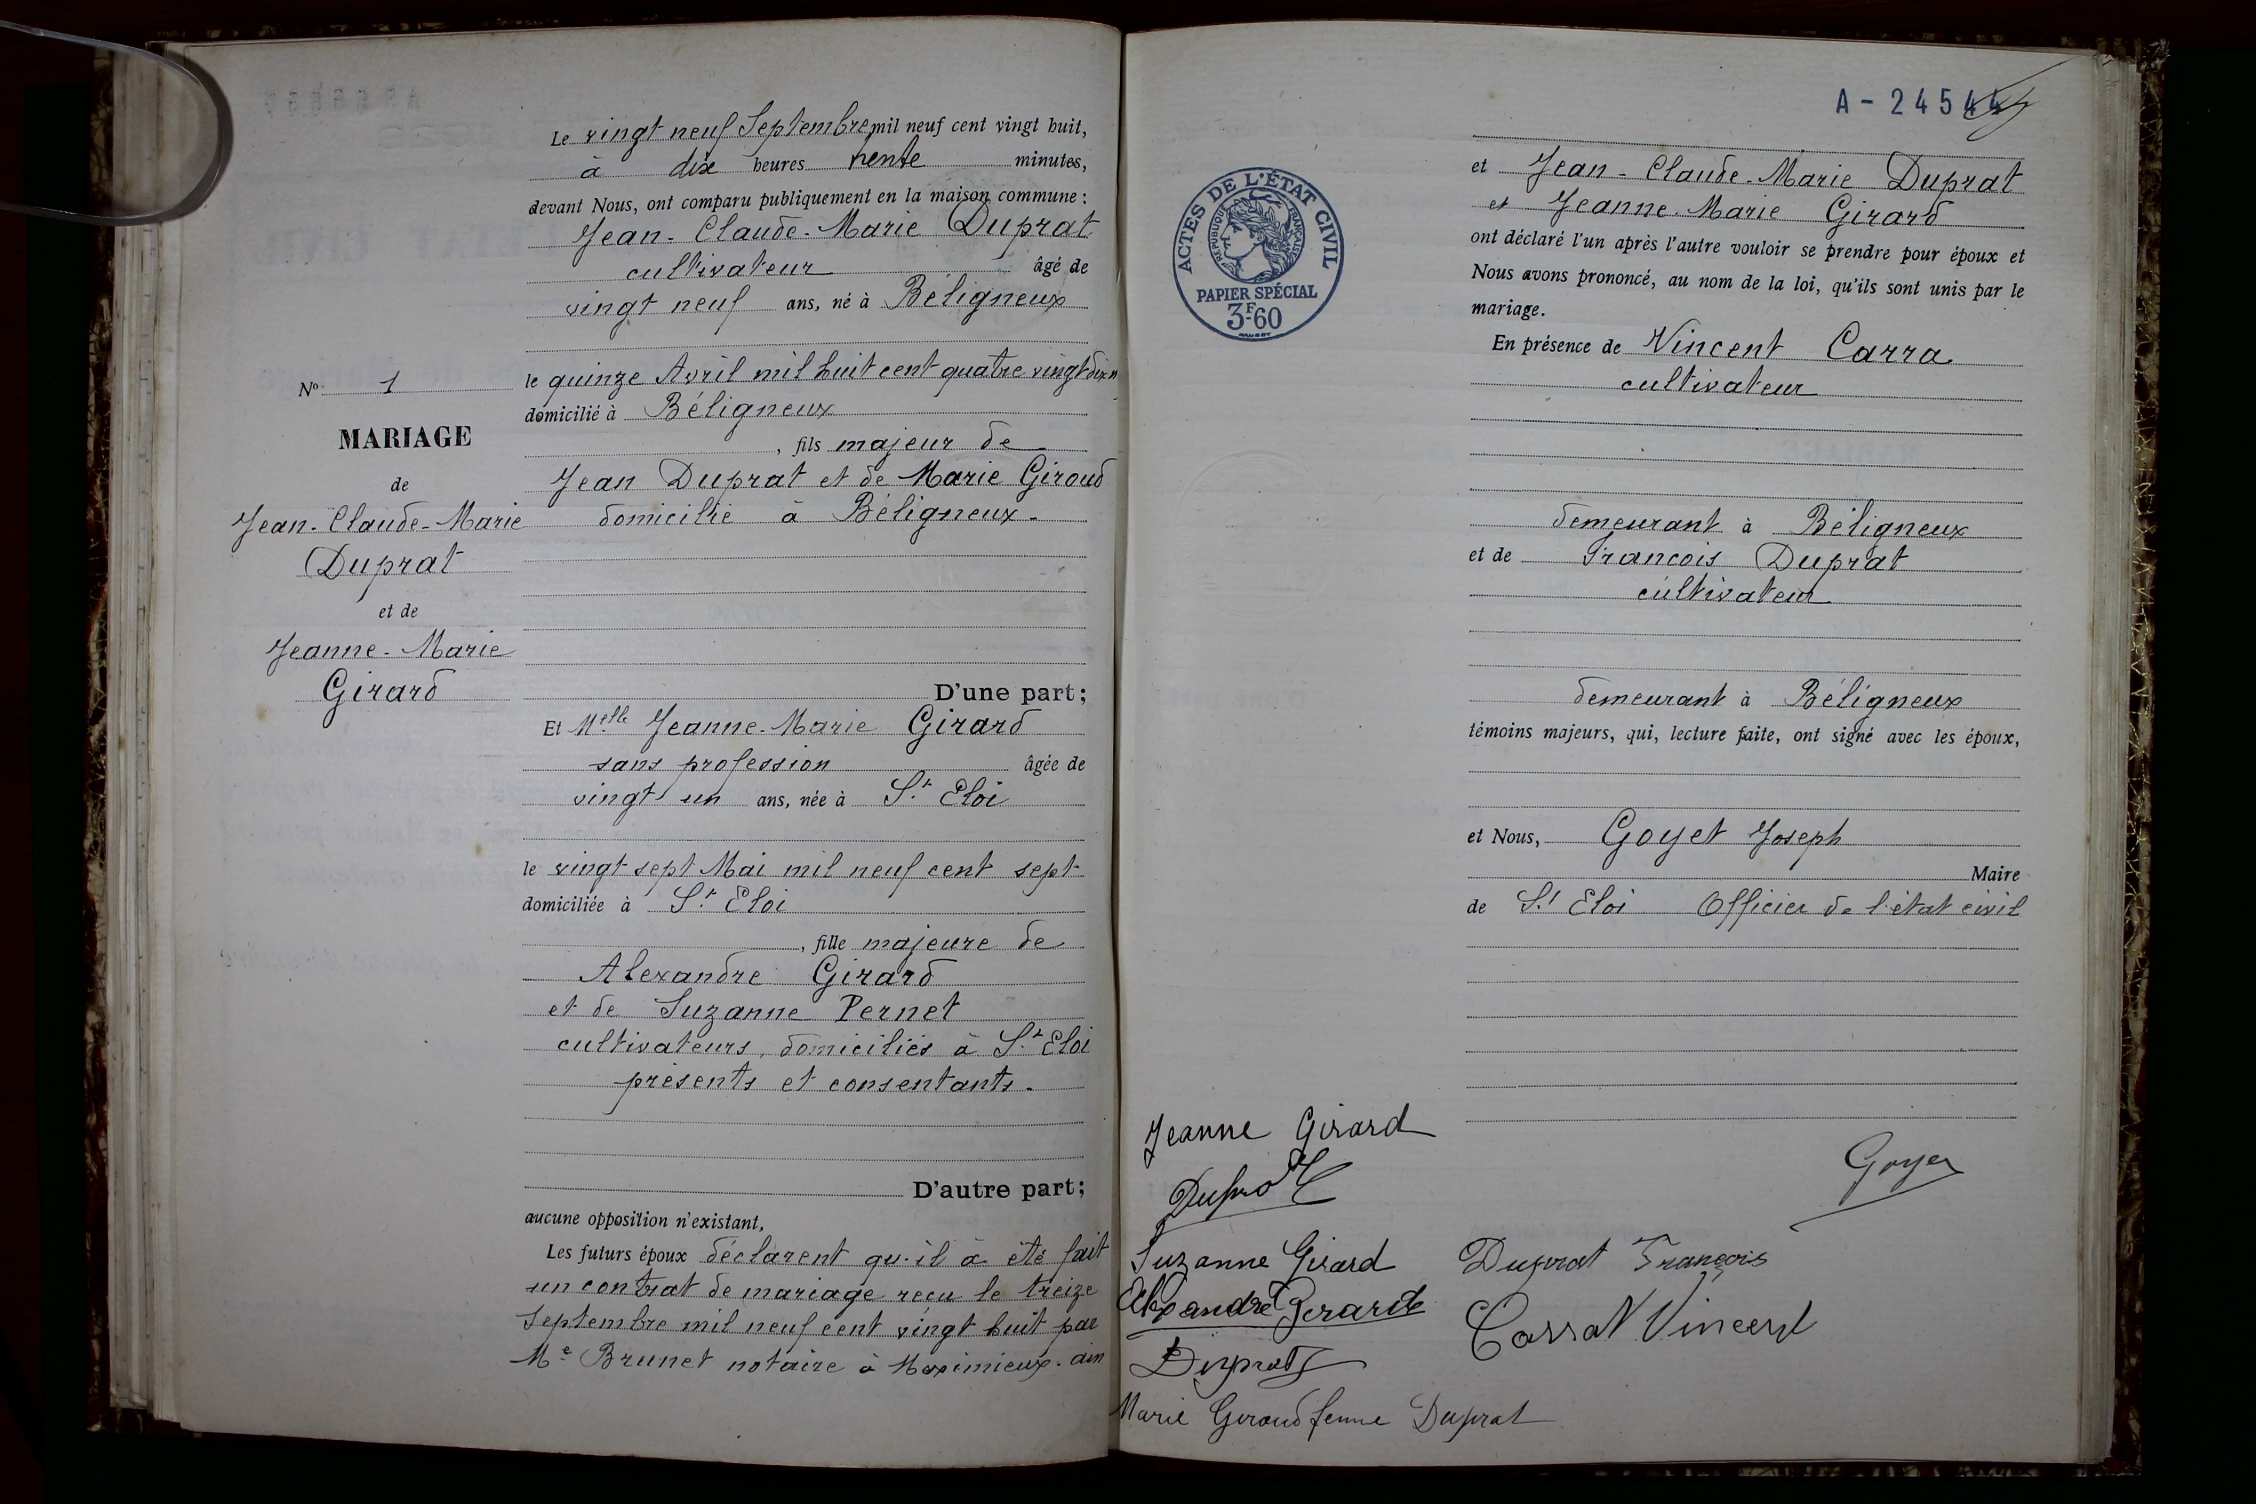 Le vingt neuf Septembre mil neuf cent vingt huit,
à dix heures trente minutes,
devant Nous, ont comparu publiquement en la maison commune :
Jean-Claude-Marie Duprat
cultivateur âgé de
vingt neuf ans, né à Béligneux
le quinze Avril mil huit cent quatre vingt dix n
domicilié à Béligneux
, fils majeur de
Jean Duprat et de Marie Giroud
domicilié à Béligneux.
D'une part;
Et Melle Jeanne-Marie Girard
sans profession âgée de
vingt un ans, née à St Eloi
le vingt sept Mai mil neuf cent sept
domiciliée à St Eloi
, fille majeure de
Alexandre Girard
et de Suzanne Pernet
cultivateurs, domiciliés à St Eloi
présents et consentants.
D'autre part;
aucune opposition n'existant,
Les futurs époux déclarent qu'il à été fait
un contrat de mariage reçu le treize
Septembre mil neuf cent vingt huit par
Me Brunet notaire à Meximieux. ain
No 1
MARIAGE
de
Jean-Claude-Marie
Duprat
et de
Jeanne-Marie
Girard
A-24544
ACTES DE L'ÉTAT CIVIL
RÉPUBLIQUE FRANÇAISE
PAPIER SPÉCIAL
3F60
et Jean-Claude-Marie Duprat
et Jeanne-Marie Girard
ont déclaré l'un après l'autre vouloir se prendre pour époux et
Nous avons prononcé, au nom de la loi, qu'ils sont unis par le
mariage.
En présence de Vincent Carra
cultivateur
demeurant à Béligneux
et de Francois Duprat
cultivateur
demeurant à Béligneux
témoins majeurs, qui, lecture faite, ont signé avec les époux,
et Nous, Goyet Joseph
Maire
de St Eloi Officier de l'état civil
Jeanne Girard
Duprat
Suzanne Girard
Alexandre Girard
Duprat
Marie Giroud femme Duprat
Goyet
Duprat François
Carrat Vincent